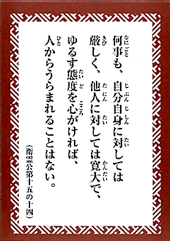 何事も、自分自身に対しては
厳しく、他人に対しては寛大で、
ゆるす態度を心がければ、
人からうらまれることはない。
(衛霊公第十五の十四)